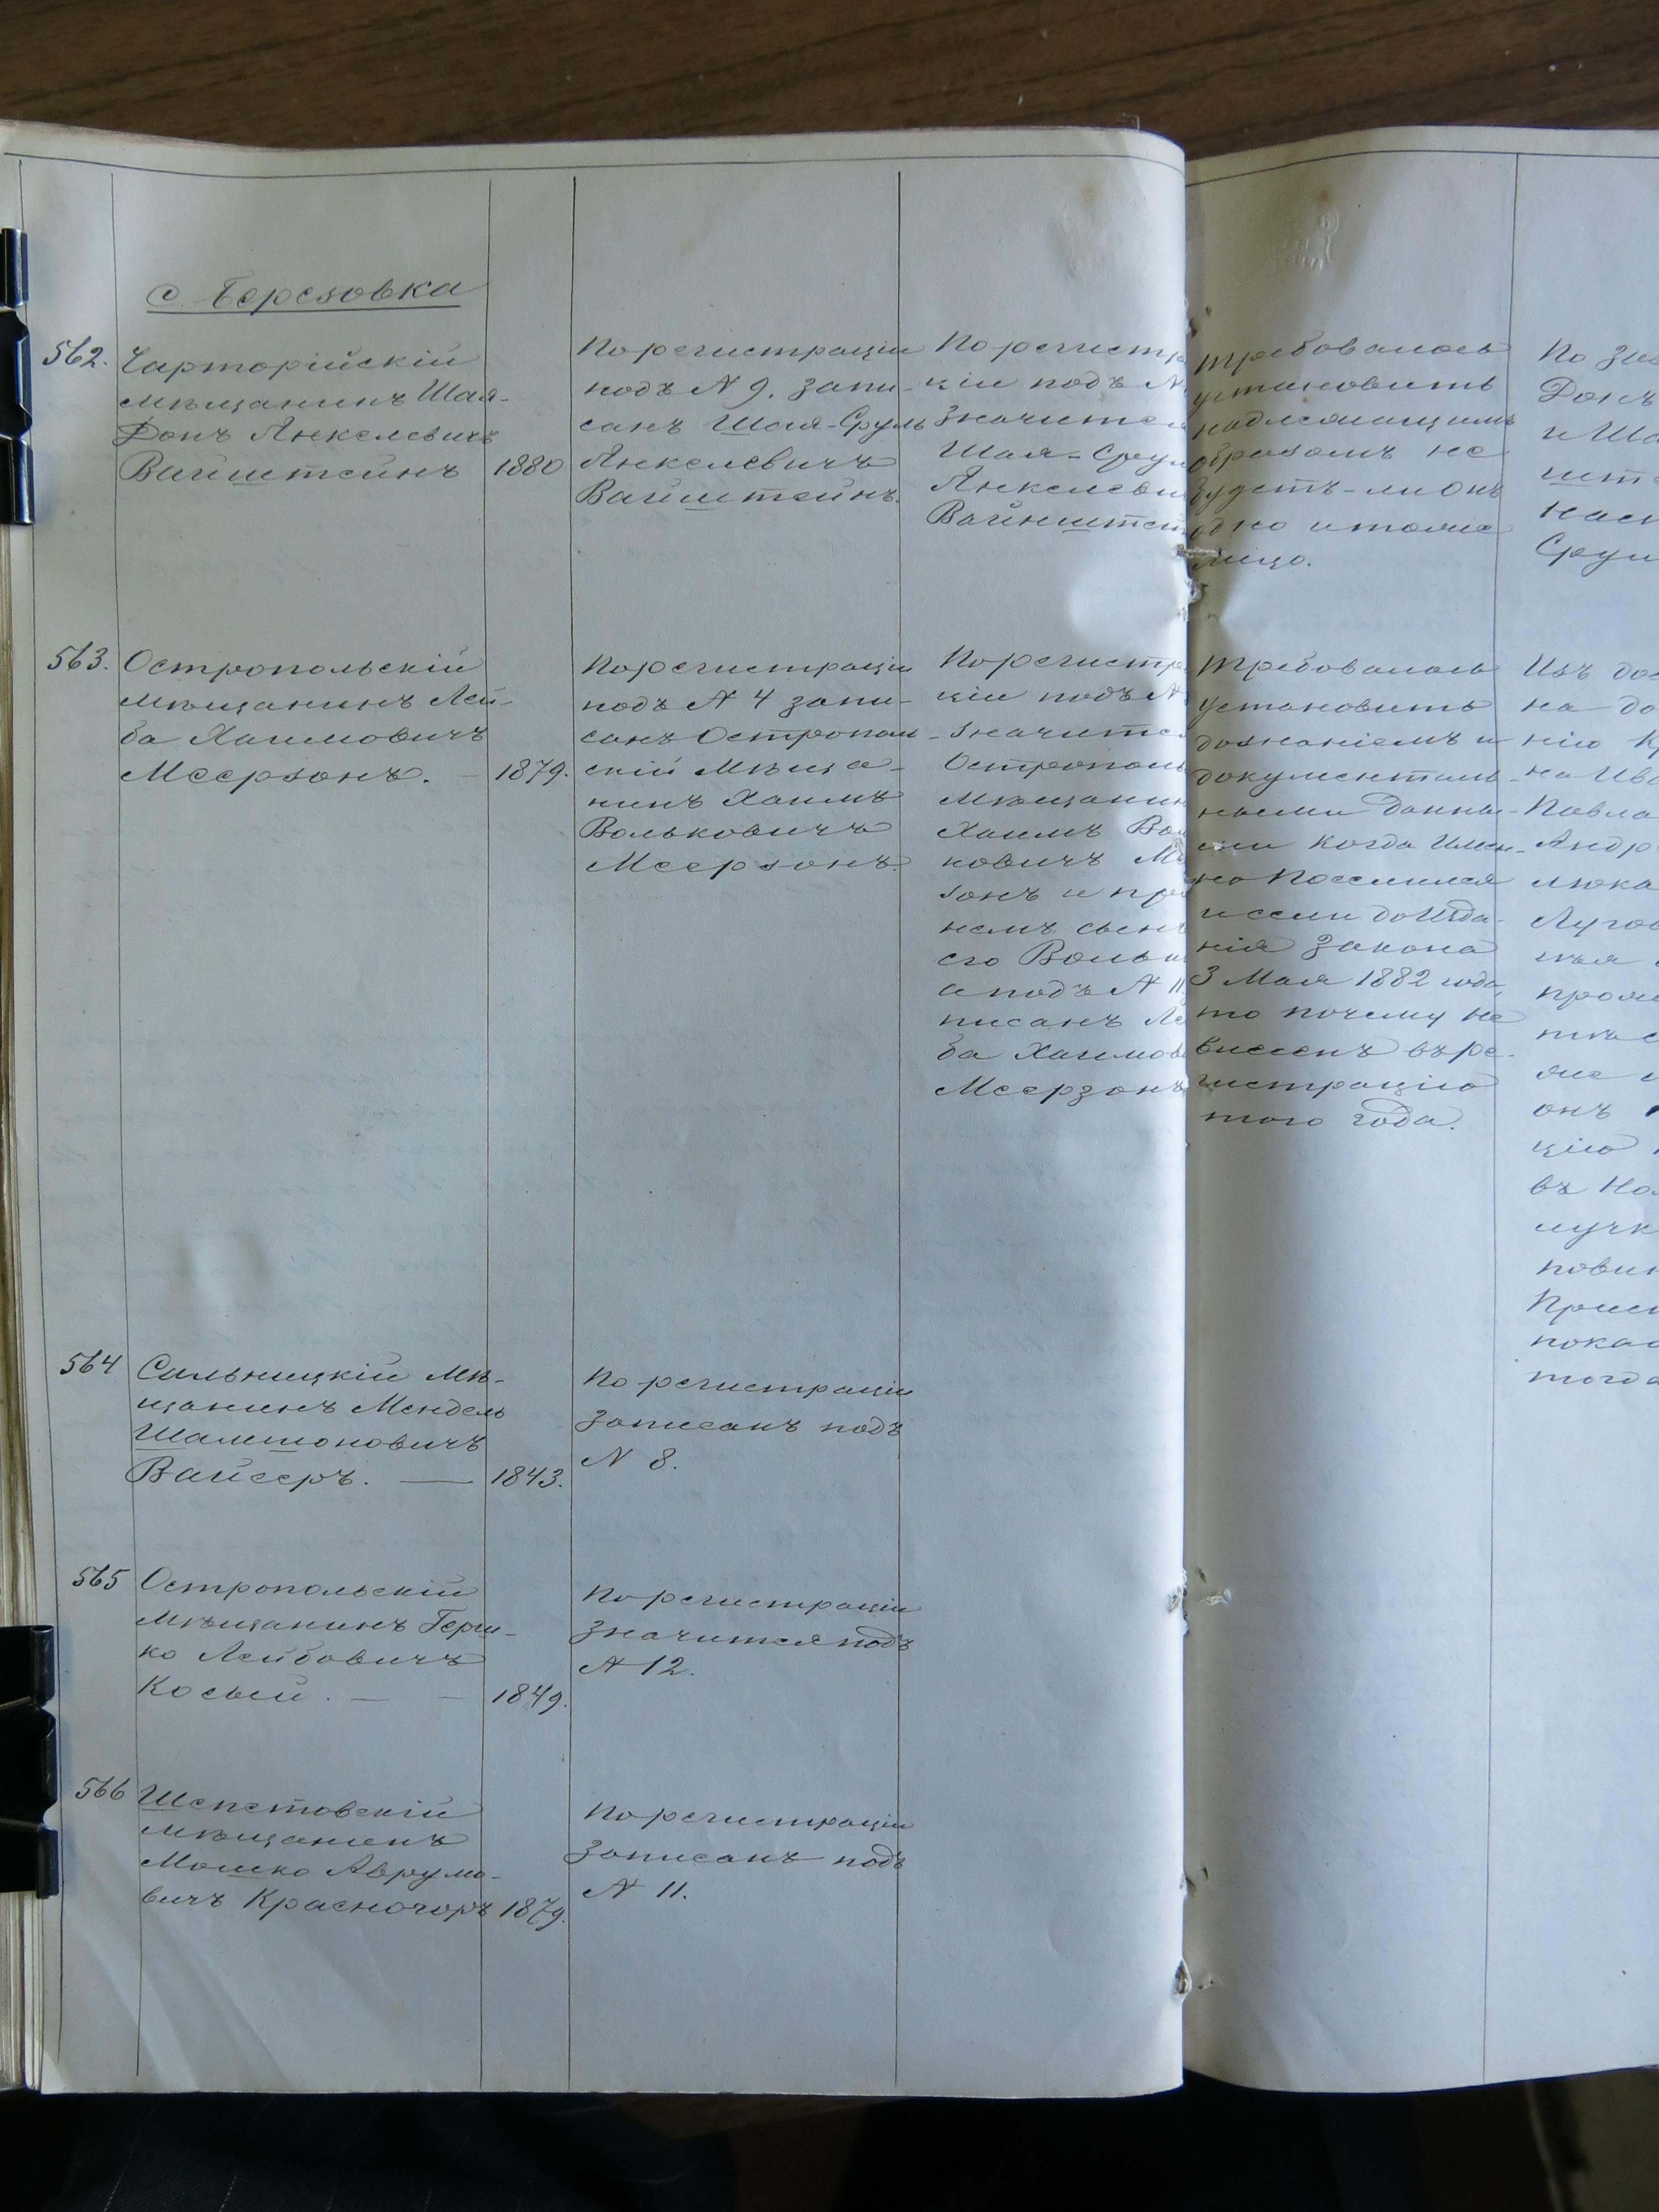 с. Березовка
562.
Чарторійскій
мѣщанинъ Шая-
Донъ Янкелевичъ
Вайштейнъ 1880
По регистраціи
подъ № 9. запи-
санъ Шая-Сруль
Янкелевичъ
Вайштейнъ.
По регистра
ціи подъ №
значится
Шая-Срул
Янкелеви
Вайнштей
Требовалось
установить
надлежащимъ
образомъ не
будетъ-ли онъ
одно и тоже
лицо.
По
Донъ
и Ша
ште
нас
Срул
563.
Остропольскій
мѣщанинъ Лей-
ба Хаимовичъ
Меерзонъ. - 1879.
По регистраціи
подъ № 4 запи-
санъОстрополь-
скій мѣща-
нинъ Хаимъ
Вольковичъ
Меерзонъ.
По регистра
ціи подъ №
значится
Острополь
мѣщанин
Хаимъ Вол
ковичъ Ме
зонъ и при
немъ сынъ
его Вольк
а подъ № 11
писанъ Ле
ба Хаимов
Меерзонъ
Требовалось
установить
дознаніемъ и
документаль-
ными данны-
ми когда имен-
но поселился
и если до изда-
нія закона
3 Мая 1882 года,
то почему не
внесенъ въ ре-
гистрацію
того года.
Изъ
на до
нію Кр
на Ива
Павла
Андр
люка
Лугов
проже
же
онъ
цію
въ Но
лучк
повин
Прич
показ
тогда
564
Сальницкій мѣ-
щанинъ Мендель
Шамшоновичъ
Вайсеръ. — 1843.
По регистраціи
записанъ подъ
№ 8.
565
Остропольскій
мѣщанинъ Герш-
ко Лейбовичъ
Косый. — — 1849.
По регистраціи
значится подъ
№ 12.
566
Шепетовскій
мѣщанинъ
Мошко Аврумо-
вичъ Красногоръ 1879.
По регистраціи
записанъ подъ
№ 11.